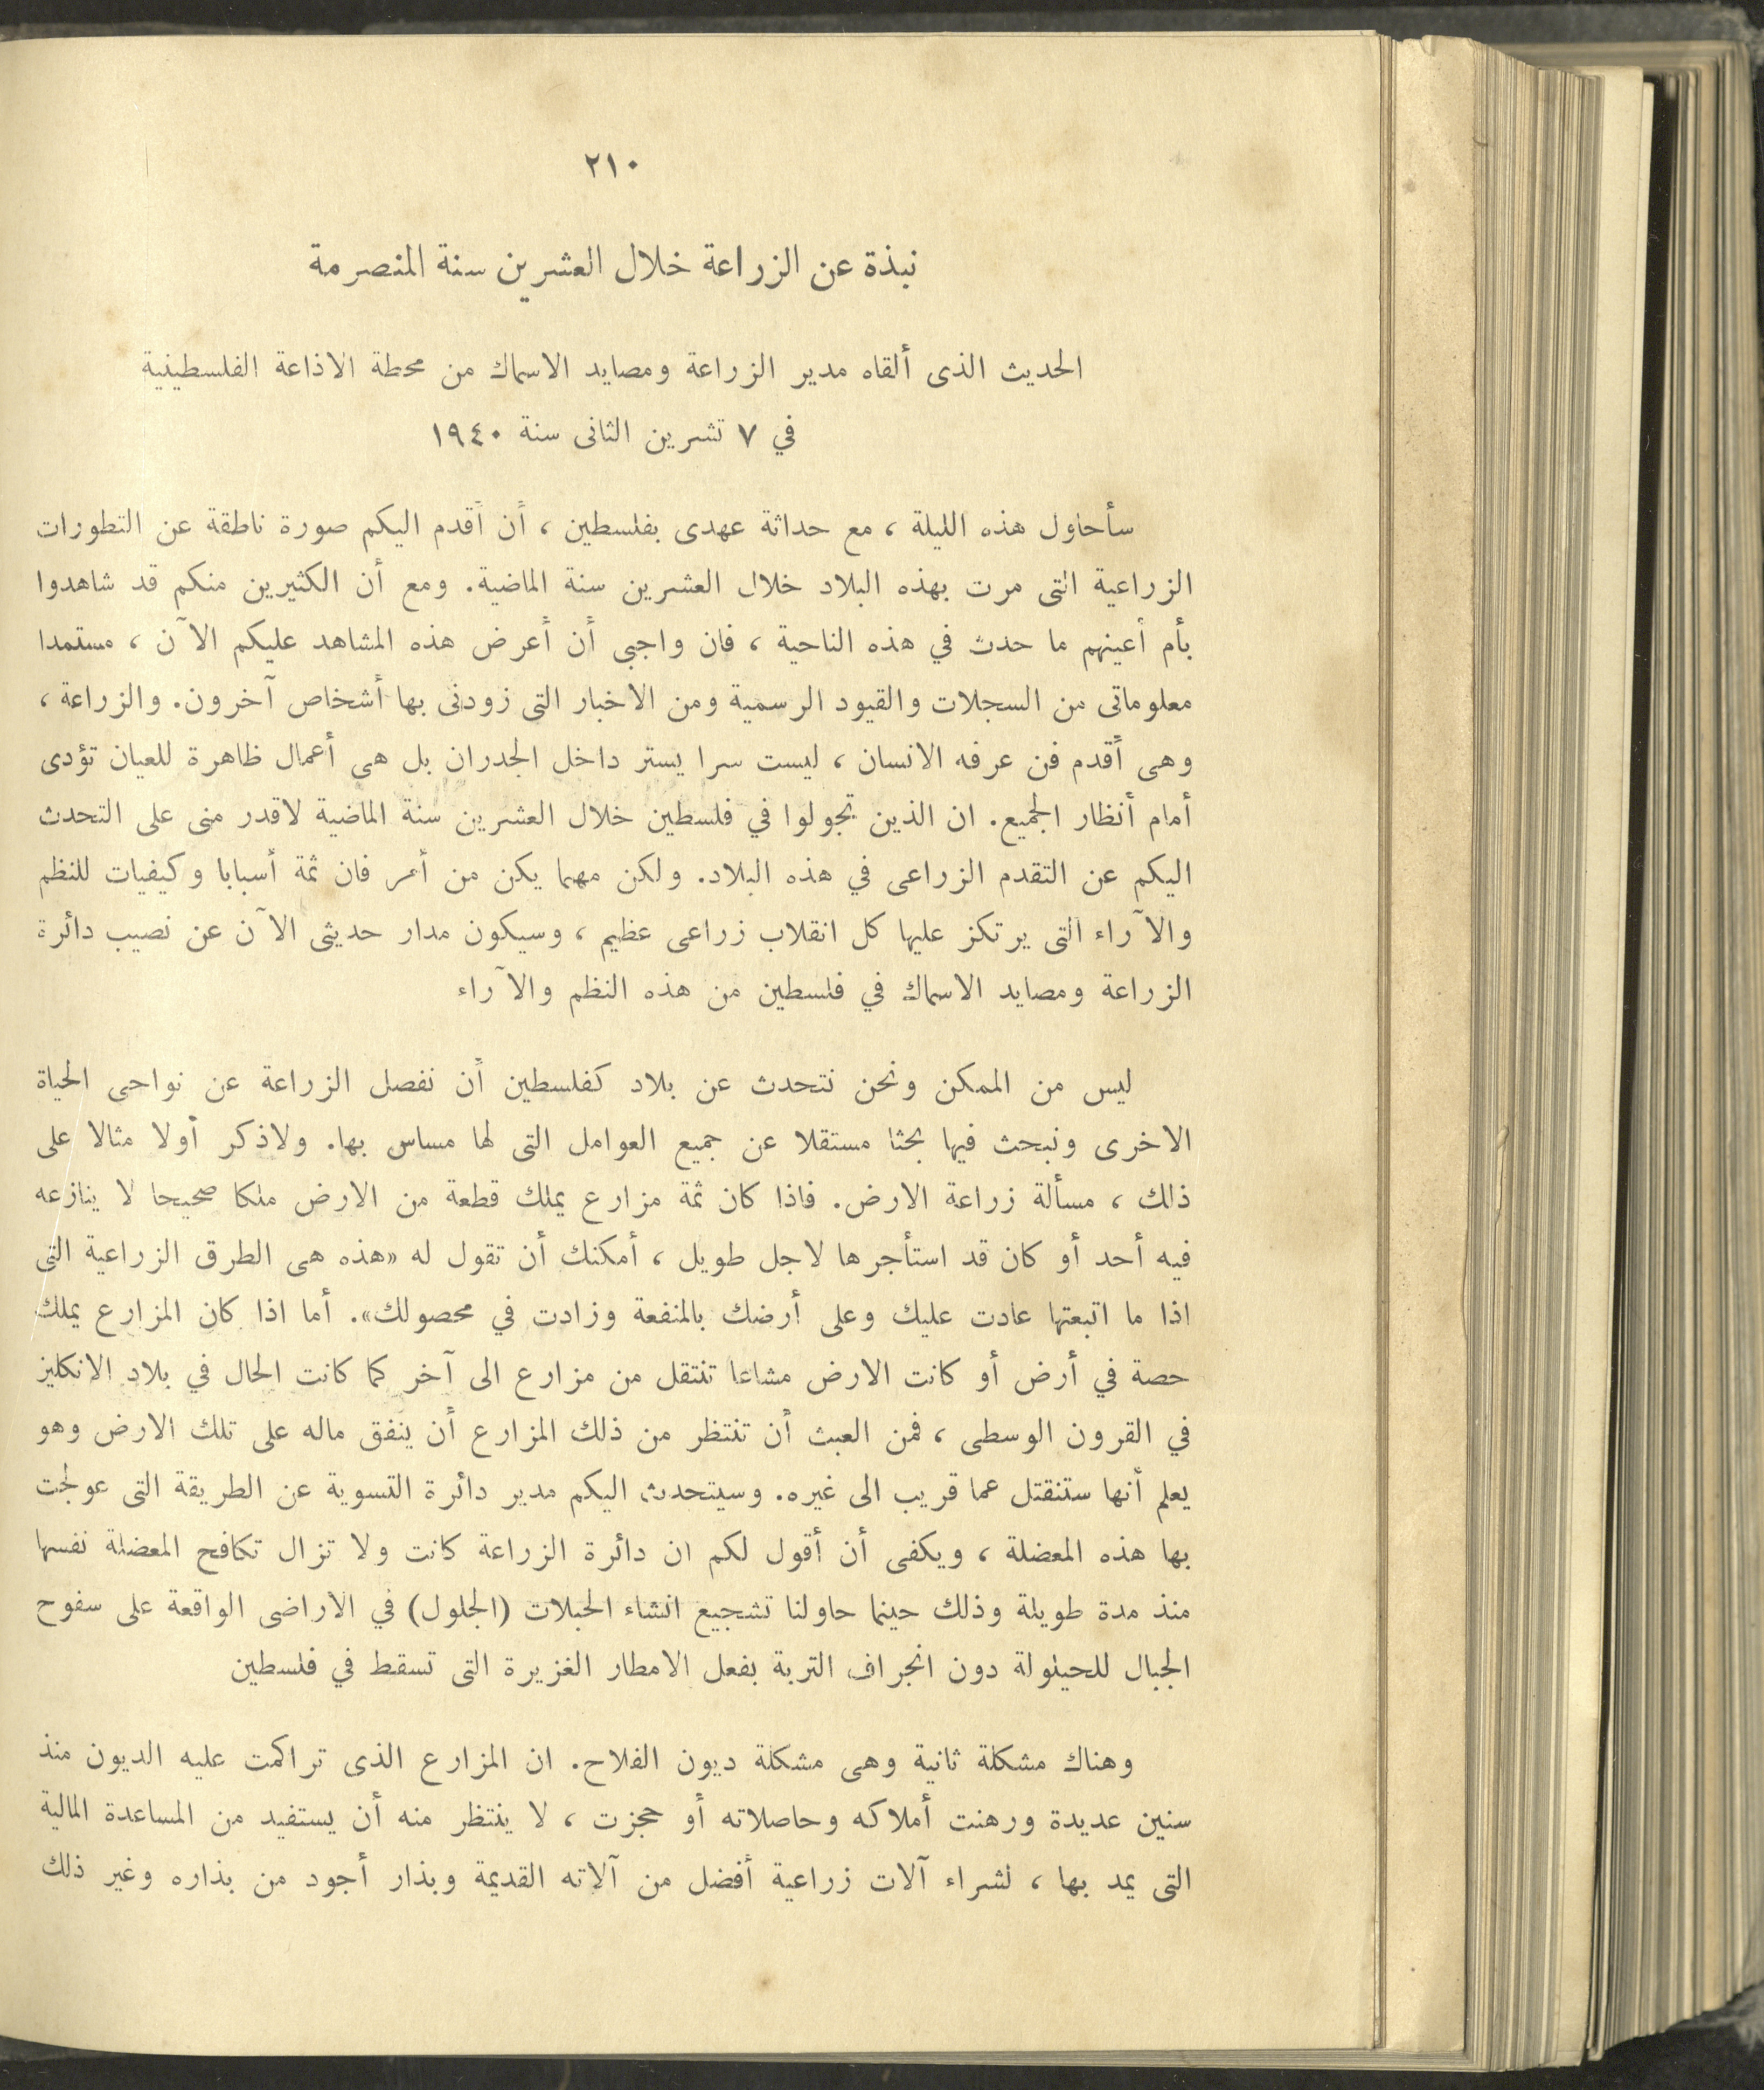 ٢١٠
نبذة عن الزراعة خلال العشرين سنة المنصرمة
الحديث الذى ألقاه مدير الزراعة ومصايد الاسماك من محطة الاذاعة الفلسطينية
في ٧ تشرين الثانى سنة ١٩٤٠
سأحاول هذه الليلة ، مع حداثة عهدى بفلسطين ، أن أقدم اليكم صورة ناطقة عن التطورات
الزراعية التى مرت بهذه البلاد خلال العشرين سنة الماضية. ومع أن الكثيرين منكم قد شاهدوا
بأم أعينهم ما حدث في هذه الناحية ، فان واجبى أن أعرض هذه المشاهد عليكم الآن ، مستمدا
معلوماتى من السجلات والقيود الرسمية ومن الاخبار التى زودنى بها أشخاص آخرون. والزراعة ،
وهى أقدم فن عرفه الانسان ، ليست سرا يستر داخل الجدران بل هى أعمال ظاهرة للعيان تؤدى
أمام أنظار الجميع. ان الذين تجولوا في فلسطين خلال العشرين سنة الماضية لاقدر منى على التحدث
اليكم عن التقدم الزراعى في هذه البلاد. ولكن مهما يكن من أمر فان ثمة أسبابا وكيفيات للنظم
والآراء التى يرتكز عليها كل انقلاب زراعى عظيم ، وسيكون مدار حديثى الآن عن نصيب دائرة
الزراعة ومصايد الاسماك في فلسطين من هذه النظم والآراء
ليس من الممكن ونحن نتحدث عن بلاد كفلسطين أن نفصل الزراعة عن نواحى الحياة
الاخرى ونبحث فيها بحثا مستقلا عن جميع العوامل التى لها مساس بها. ولاذكر أولا مثالا على
ذلك ، مسألة زراعة الارض. فاذا كان ثمة مزارع يملك قطعة من الارض ملكا صحيحا لا ينازعه
فيه أحد أو كان قد استأجرها لاجل طويل ، أمكنك أن تقول له «هذه هى الطرق الزراعية التى
اذا ما اتبعتها عادت عليك وعلى أرضك بالمنفعة وزادت في محصولك». أما اذا كان المزارع يملك
حصة في أرض أو كانت الارض مشاعا تنتقل من مزارع الى آخر كما كانت الحال في بلاد الانكليز
في القرون الوسطى ، فمن العبث أن تنتظر من ذلك المزارع أن ينفق ماله على تلك الارض وهو
يعلم أنها ستنقتل عما قريب الى غيره. وسيتحدث اليكم مدير دائرة التسوية عن الطريقة التى عولجت
بها هذه المعضلة ، ويكفى أن أقول لكم ان دائرة الزراعة كانت ولا تزال تكافح المعضلة نفسها
منذ مدة طويلة وذلك حينما حاولنا تشجيع انشاء الحبلات (الجلول) في الاراضى الواقعة على سفوح
الجبال للحيلولة دون انجراف التربة بفعل الامطار الغزيرة التى تسقط في فلسطين
وهناك مشكلة ثانية وهى مشكلة ديون الفلاح. ان المزارع الذى تراكمت عليه الديون منذ
سنين عديدة ورهنت أملاكه وحاصلاته أو حجزت ، لا ينتظر منه أن يستفيد من المساعدة المالية
التى يمد بها ، لشراء آلات زراعية أفضل من آلاته القديمة وبذار أجود من بذاره وغير ذلك